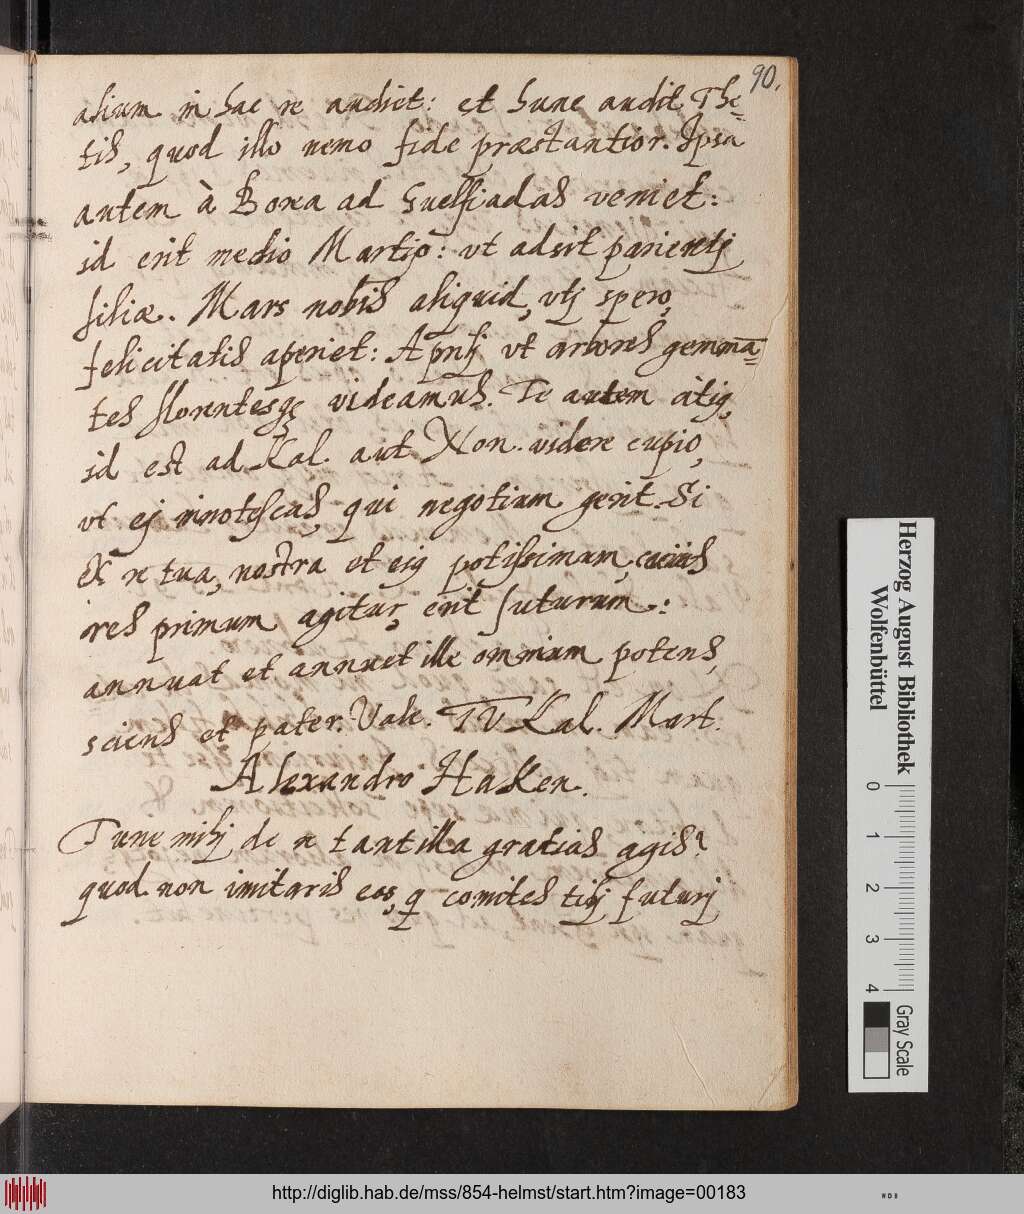 90.
alium in hac re audiet: et hunc audit The=
tis, quod illo nemo fide præstantior. Ipsa
autem à Bona ad Guelfiadas veniet:
id erit medio Martio: vt adsit parientj
filiæ. Mars nobis aliquid, vtj spero,
felicitatis aperiet: Aprilj vt arbores gemma=
tes florentesq; videamus. Te autem
id est ad Kal. aut Non. videre cupio,
vt ej innotescas, qui negotium gerit. Si
Et re tua, nostra et potissimum,
res primum agitur, erit futurum:
annuat et annuet ille omnium potens,
sciens et pater. Vale. IV Kal. Mart.
Alexandro Haken.
Tune mihj de re tantilla gratias agis?
quod non imitaris eos, q comites tibj futurj
Herzog August Bibliothek
Wolfenbüttel
0 1 2 3 4
Gray Scale
http://diglib.hab.de/mss/854-helmst/start.htm?image=00183
WDB